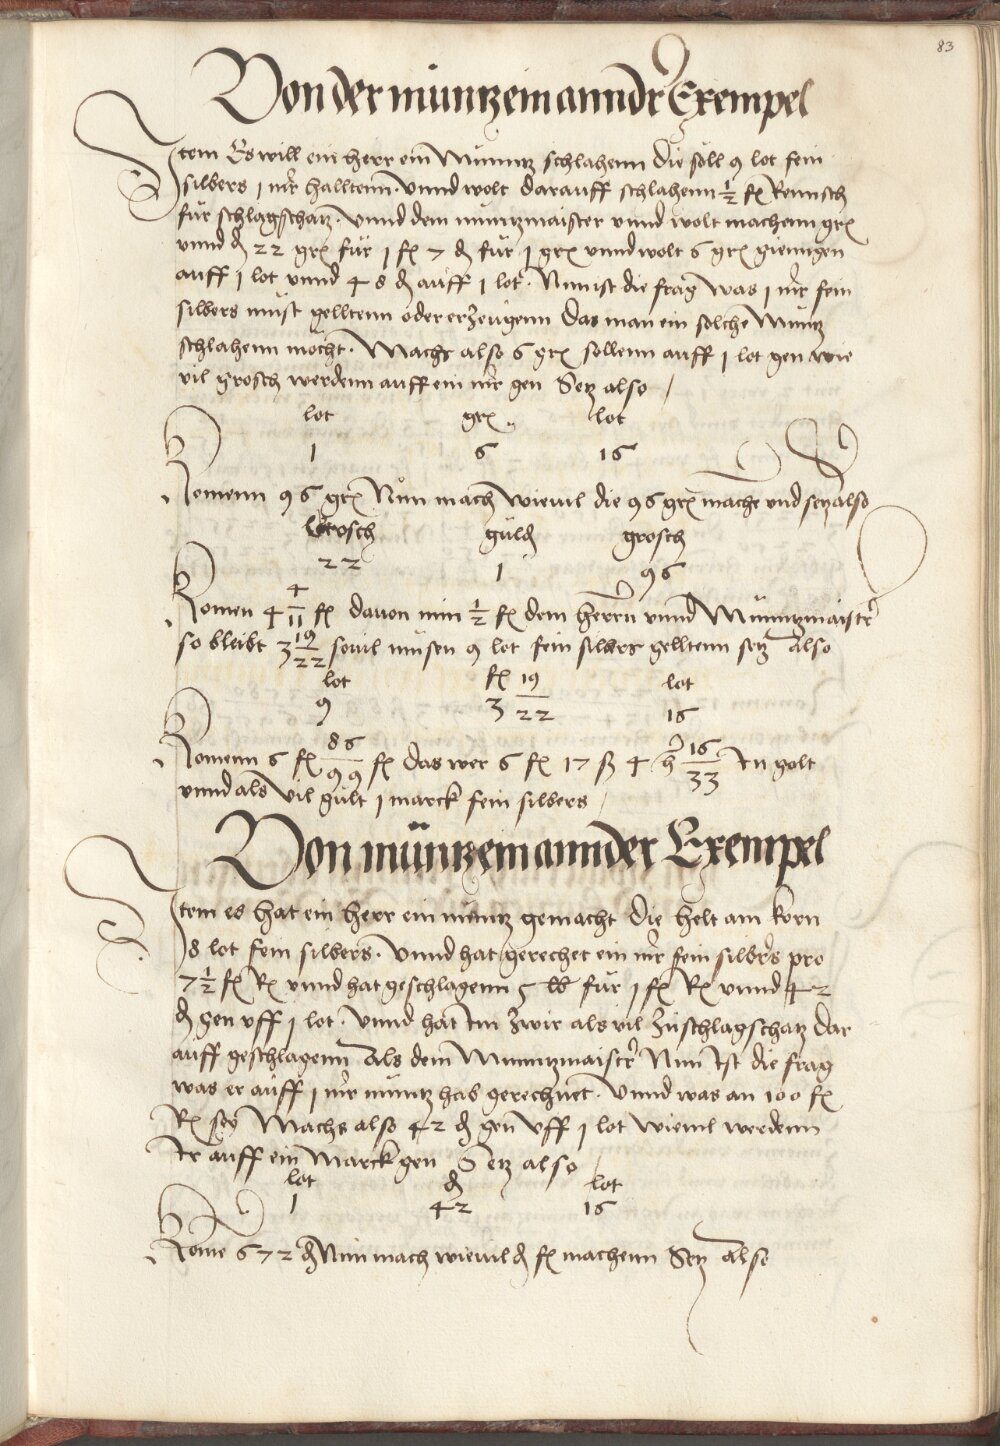 83
Von der müntz ein anndr Exempel
Item Es will ein herr ein Müntz schlahenn die soll 9 lot fein
silbers 1 mr halltenn. Vnnd wolt darauff schlahenn 1/2 fl Reinisch
für schlagschatz. Vnnd dem müntzmaister vnnd wolt machenn grx
vnnd ₰ 22 grx für 1 fl 7 ₰ für 1 grx vnnd wolt 6 grx gienngen
auff 1 lot vnnd 48 ₰ auff 1 lot. Nun ist die frag was 1 mr fein
silbers müst gelltenn oder erzeugenn das man ein solche Müntz
schlahenn möcht. Machs also 6 grx sollenn auff 1 lot gen wie
vil grosch werdenn auff ein mr gen Setz also /
lot grx lot
1 6 16
Komenn 96 grx Nun mach wieuil die 96 grx mache vnd setz also
Grosch guld grosch
22 1 96
Komen 4 4/11 fl dauon nim 1/2 fl dem herrn vnnd Müntzmaistr
so bleibt 3 19/22 souil müsen 9 lot fein silbers gelltenn setz also
lot fl lot
9 3 19/22 16
Komenn 6 fl 86/99 fl das wer 6 fl 17 ß 4 h 16/33 In golt
vnnd als vil gült 1 marck fein silbers /
Von müntz ein annder Exempel
Item es hat ein herr ein müntz gemacht die helt am korn
8 lot fein silbers. Vnnd hat gerechet ein mr fein silbrs pro
7 1/2 fl Rx vnnd hat geschlagenn 5 lb für 1 fl Rx vnnd 42
₰ gen vff 1 lot. Vnnd hat Im zwir als vil zu schlagschatz dar
auff geschlagenn als dem Müntzmaistr Nun Ist die frag
was er auff 1 mr müntz hab gerechnet. Vnnd was an 100 fl
Rx sey Machs also 42 ₰ gen vff 1 lot wieuil werdenn
Ir auff ein Marck gen Setz also /
lot ₰ lot
1 42 16
Kome 672 ₰ Nun mach wieuil ₰ fl machenn Setz also